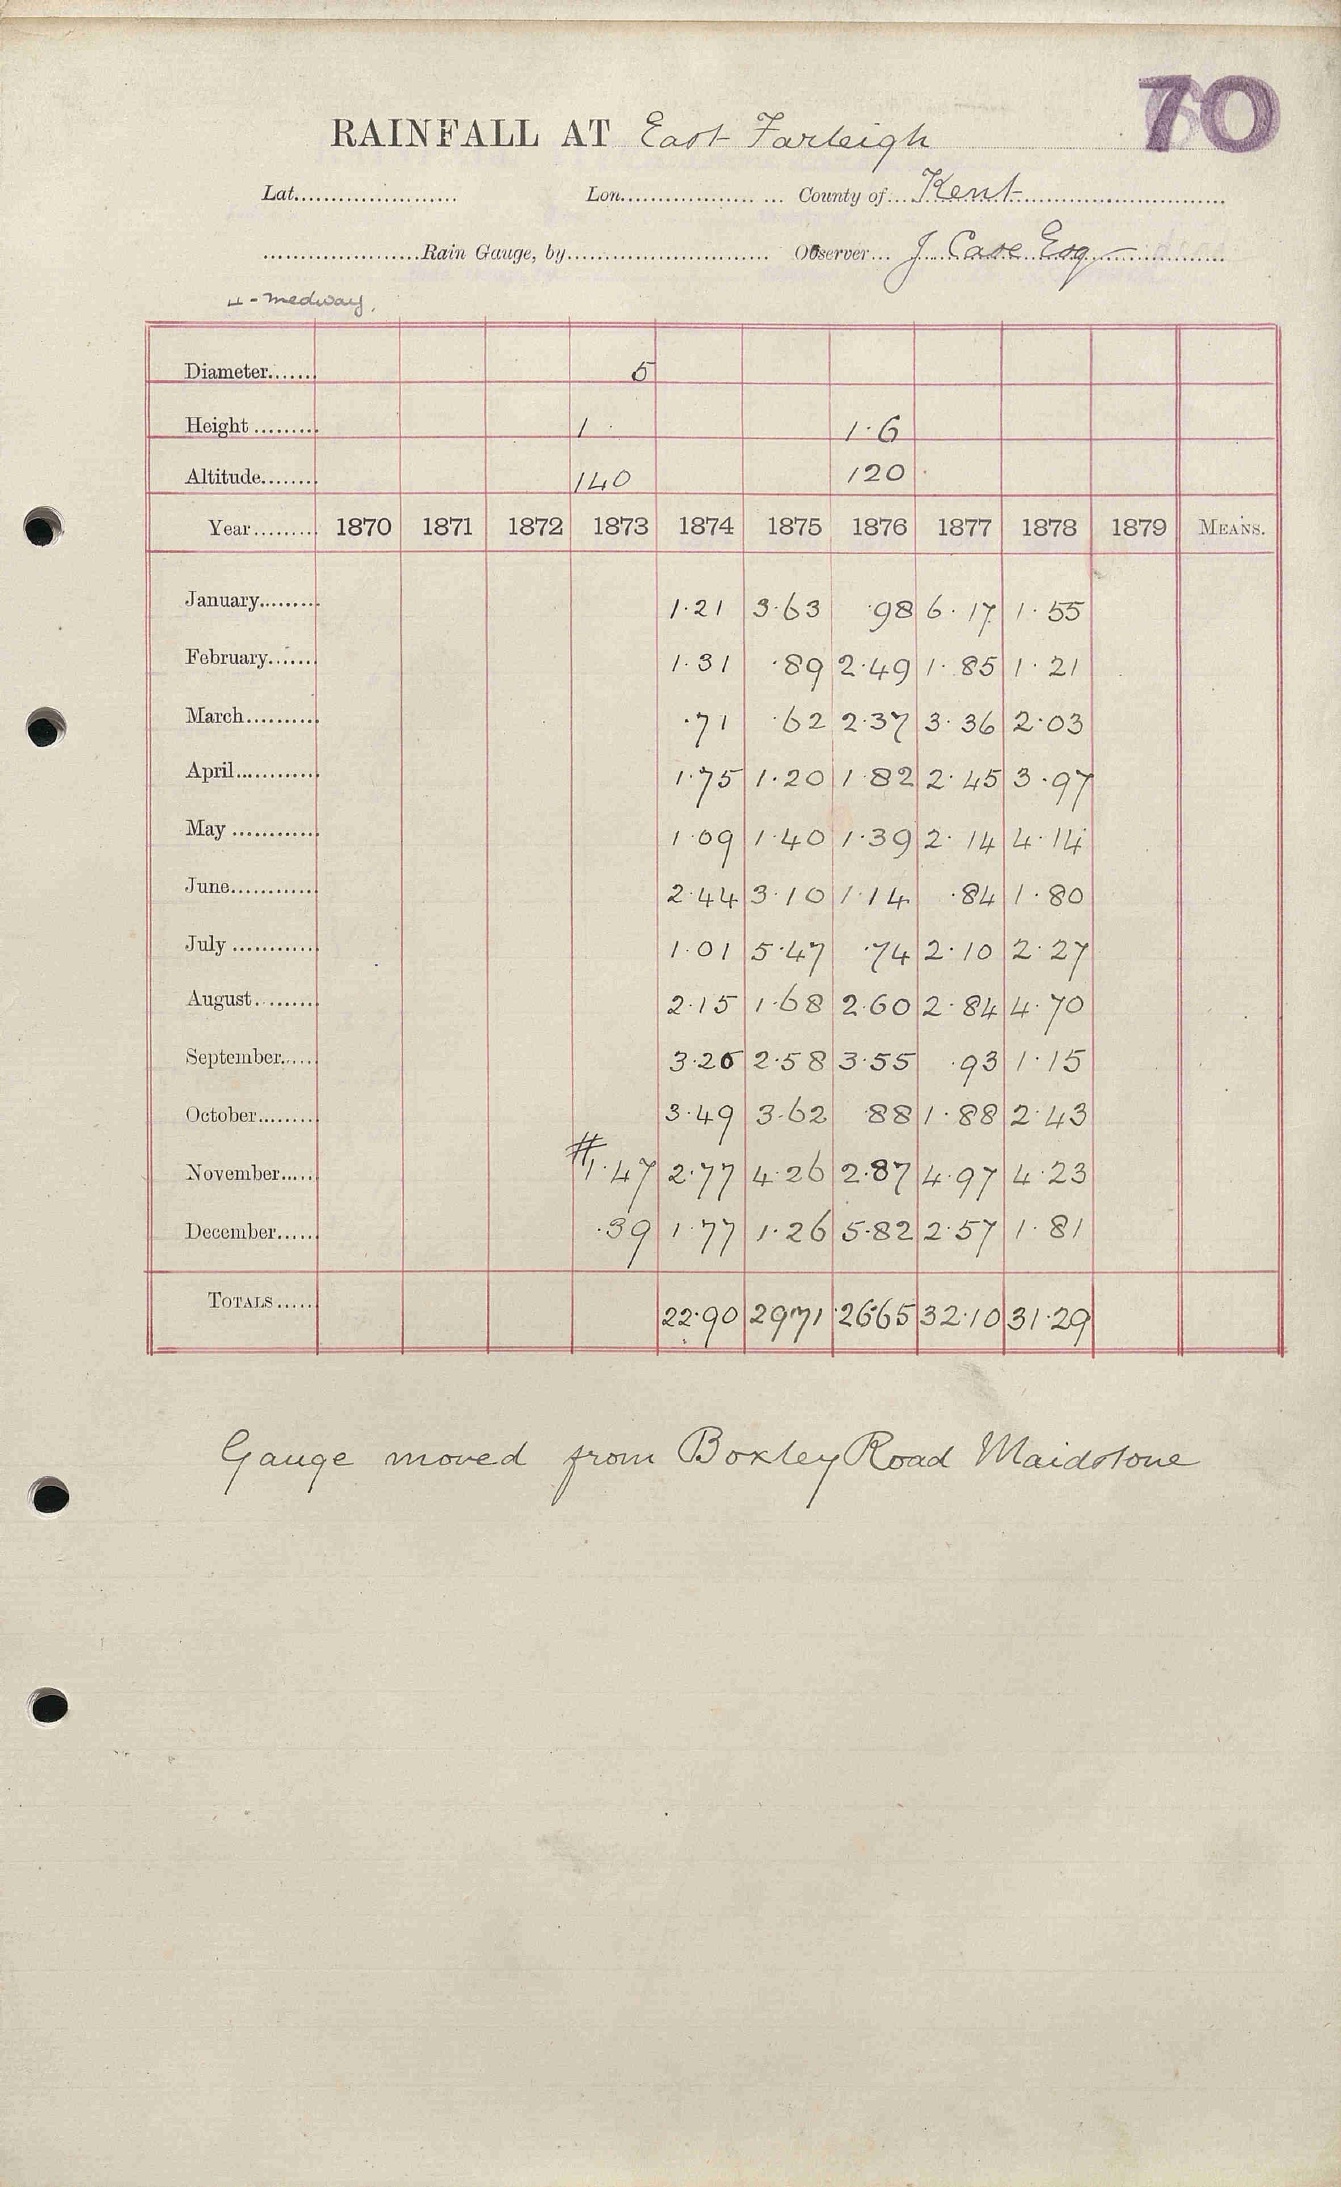 70
RAINFALL AT East Farleigh
Lat. Lon. County of Kent
Rain Gauge, by Observer J Case Esq
4 - Medway.
Diameter 5
Height 1 1·6
Altitude 140 120
Year 1870 1871 1872 1873 1874 1875 1876 1877 1878 1879 MEANS.
January 1·21 3·63 ·98 6·17 1·55
February 1·31 ·89 2·49 1·85 1·21
March ·71 ·62 2·37 3·36 2·03
April 1·75 1·20 1·82 2·45 3·97
May 1·09 1·40 1·39 2·14 4·14
June 2·44 3·10 1·14 ·84 1·80
July 1·01 5·47 ·74 2·10 2·27
August 2·15 1·68 2·60 2·84 4·70
September 3·20 2·58 3·55 ·93 1·15
October 3·49 3·62 ·88 1·88 2·43
November #1·47 2·77 4·26 2·87 4·97 4·23
December ·39 1·77 1·26 5·82 2·57 1·81
TOTALS 22·90 29·71 26·65 32·10 31·29
Gauge moved from Boxley Road Maidstone